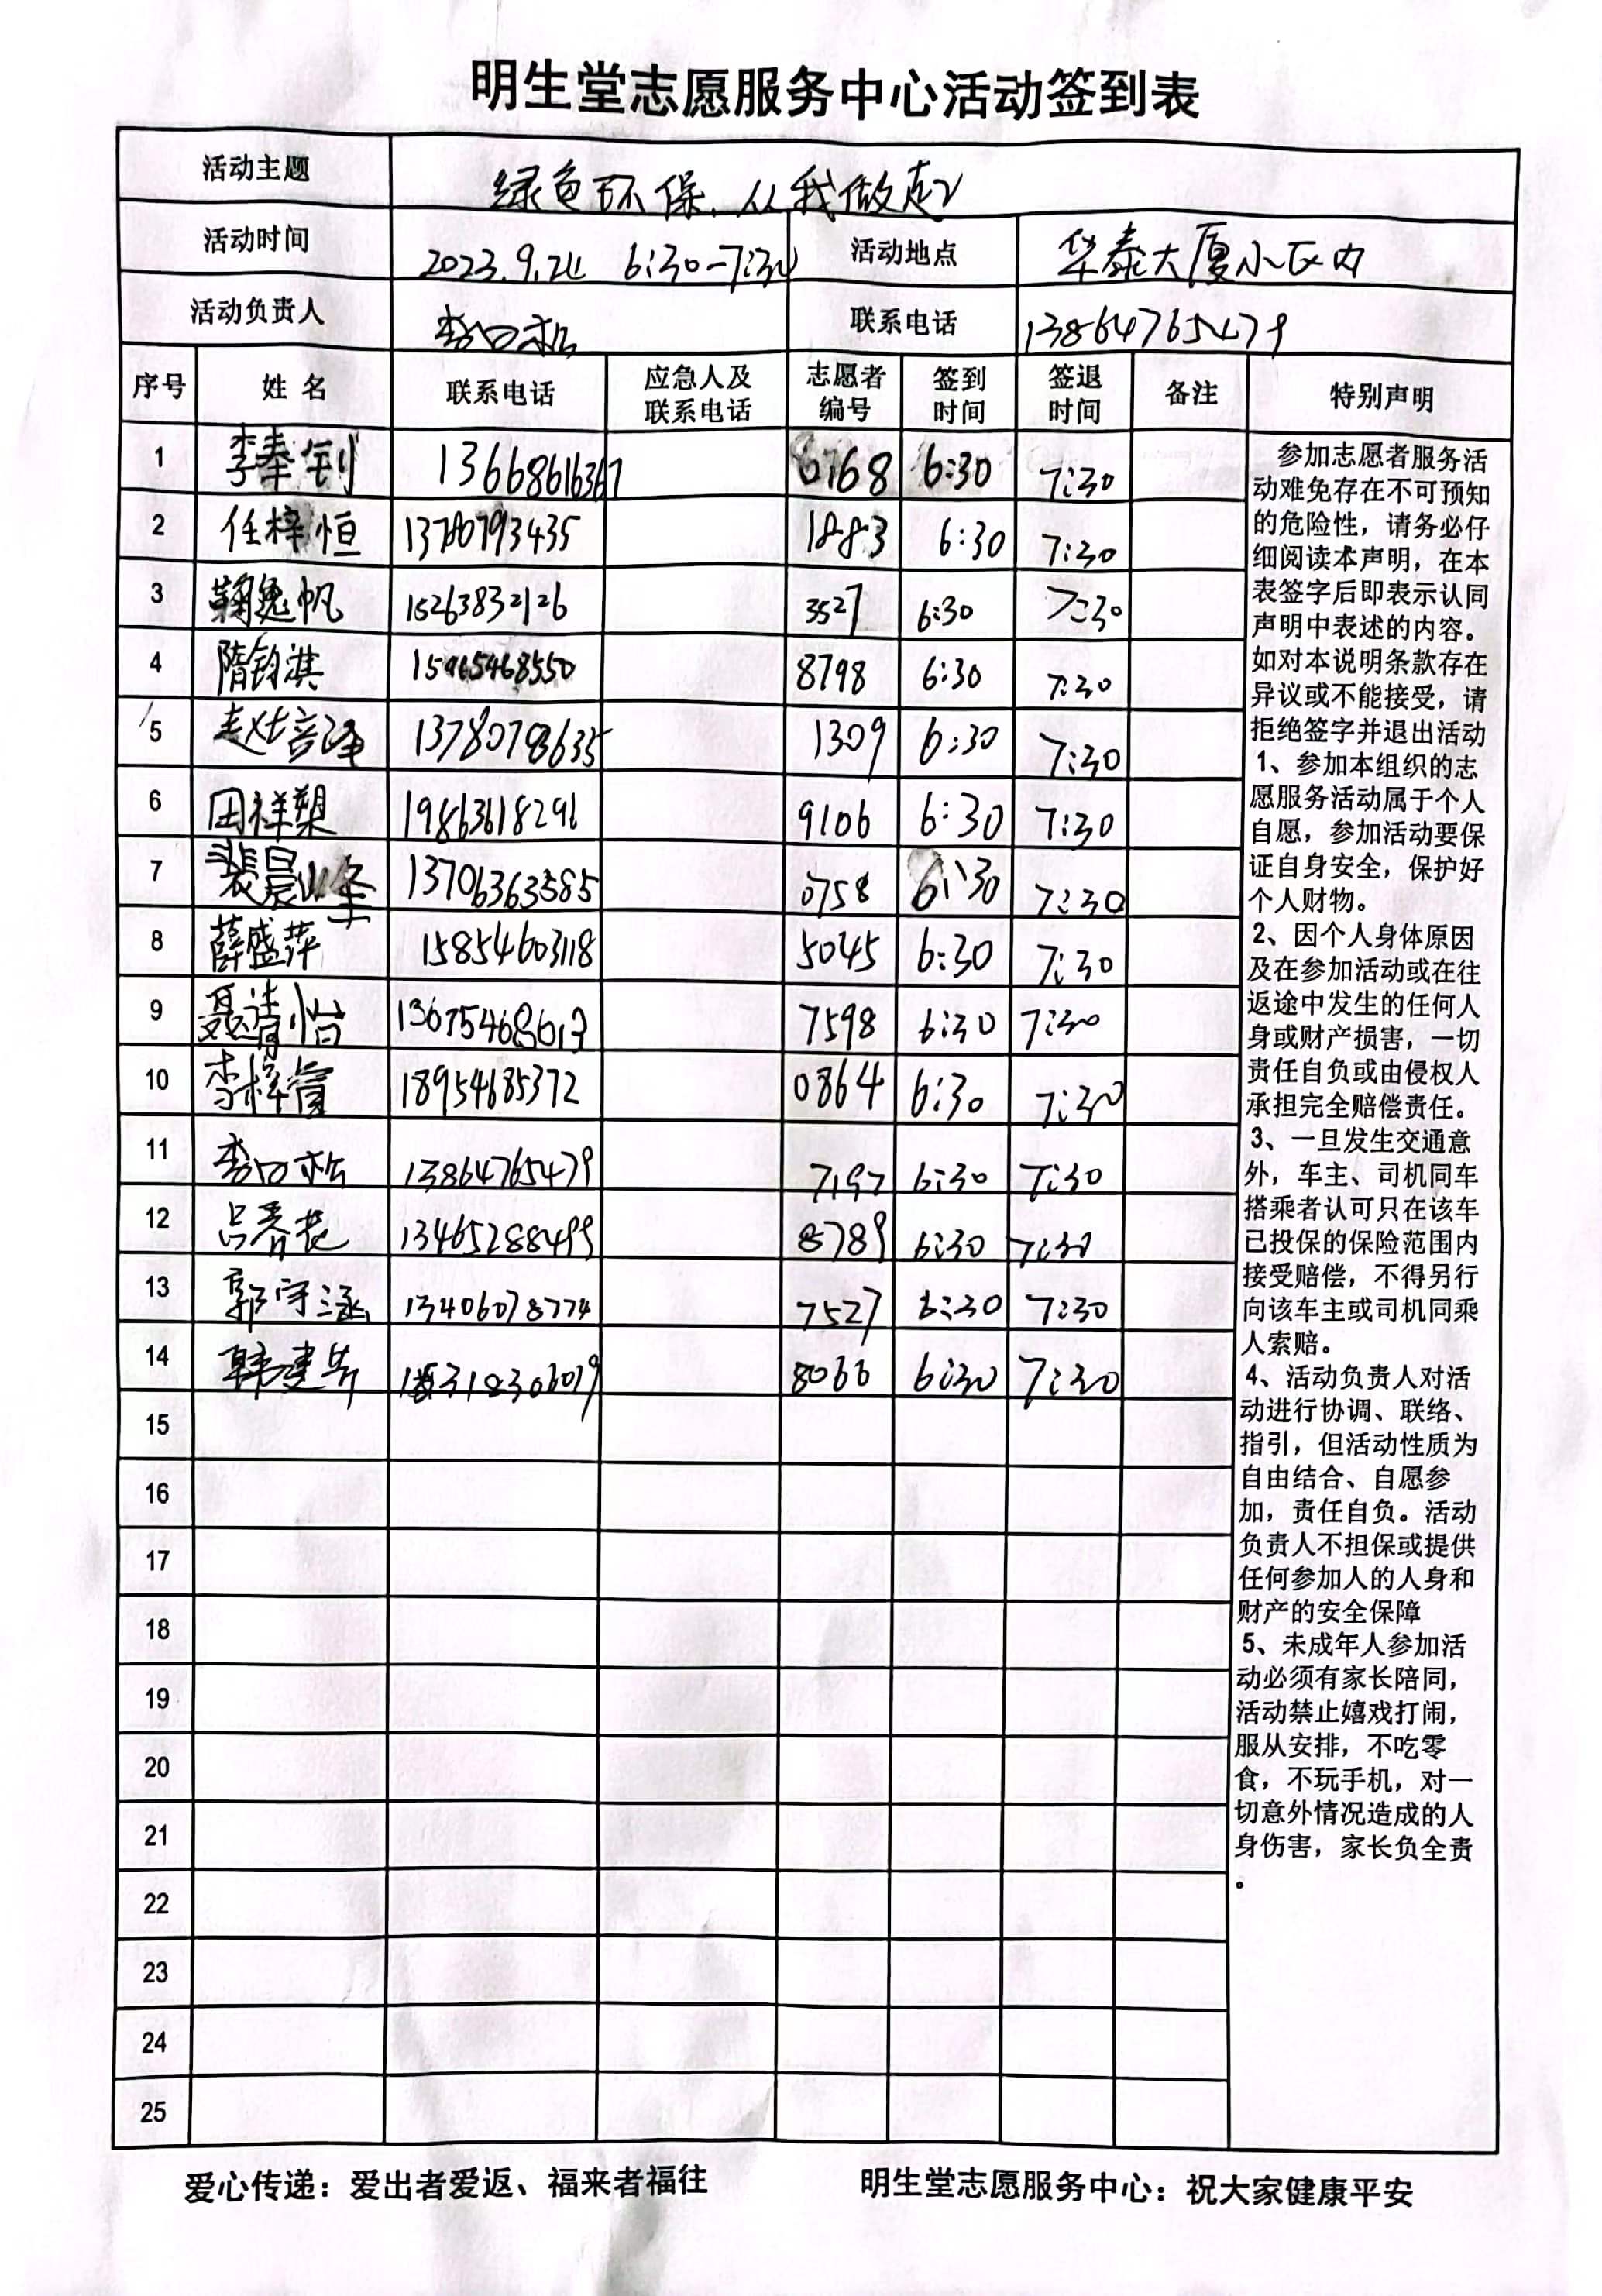 明生堂志愿服务中心活动签到表
活动主题 绿色环保、从我做起
活动时间 2023.9.24 6:30-7:30 活动地点 华泰大厦小区内
活动负责人 联系电话 13864765479
序号 姓名 联系电话 应急人及联系电话 志愿者编号 签到时间 签退时间 备注 特别声明
1 李奉钊 13668616367 6168 6:30 7:30
2 任梓恒 13780793435 1883 6:30 7:30
3 鞠逸帆 15263832126 3527 6:30 7:30
4 隋钧淇 15965468550 8798 6:30 7:30
5 赵培泽 13780798635 1309 6:30 7:30
6 田祥塱 19863618296 9106 6:30 7:30
7 裴晨峰 13706363585 0758 6:30 7:30
8 薛盛萍 15854603118 5045 6:30 7:30
9 聂清怡 13675468613 7598 6:30 7:30
10 李梓萱 18954685372 0864 6:30 7:30
11 13864765479 7197 6:30 7:30
12 吕秀花 13465288499 8789 6:30 7:30
13 郭守涵 13406078774 7527 6:30 7:30
14 韩建芳 8066 6:30 7:30
15
16
17
18
19
20
21
22
23
24
25
参加志愿者服务活
动难免存在不可预知
的危险性，请务必仔
细阅读本声明，在本
表签字后即表示认同
声明中表述的内容。
如对本说明条款存在
异议或不能接受，请
拒绝签字并退出活动
1、参加本组织的志
愿服务活动属于个人
自愿，参加活动要保
证自身安全，保护好
个人财物。
2、因个人身体原因
及在参加活动或在往
返途中发生的任何人
身或财产损害，一切
责任自负或由侵权人
承担完全赔偿责任。
3、一旦发生交通意
外，车主、司机同车
搭乘者认可只在该车
已投保的保险范围内
接受赔偿，不得另行
向该车主或司机同乘
人索赔。
4、活动负责人对活
动进行协调、联络、
指引，但活动性质为
自由结合、自愿参
加，责任自负。活动
负责人不担保或提供
任何参加人的人身和
财产的安全保障
5、未成年人参加活
动必须有家长陪同，
活动禁止嬉戏打闹，
服从安排，不吃零
食，不玩手机，对一
切意外情况造成的人
身伤害，家长负全责
。
爱心传递：爱出者爱返、福来者福往 明生堂志愿服务中心：祝大家健康平安